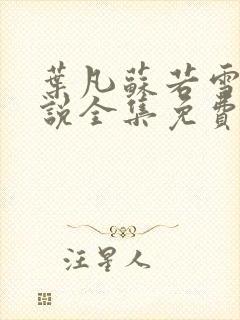 葉凡蘇若雪
說全集免費
汪星人